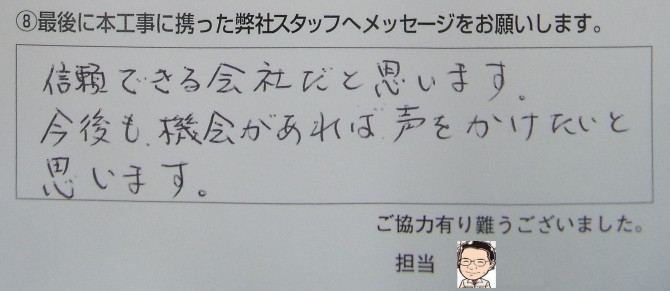 ⑧最後に本工事に携った弊社スタッフへメッセージをお願いします。
信頼できる会社だと思います。
今後も、機会があれば声をかけたいと
思います。
ご協力有り難うございました。
担当